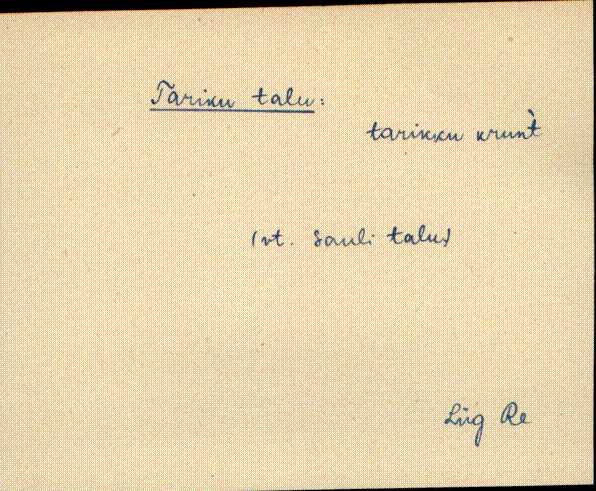 Tariku talu:
tarikku kruǹt
(vt. Sauli talu)
Lüg Re